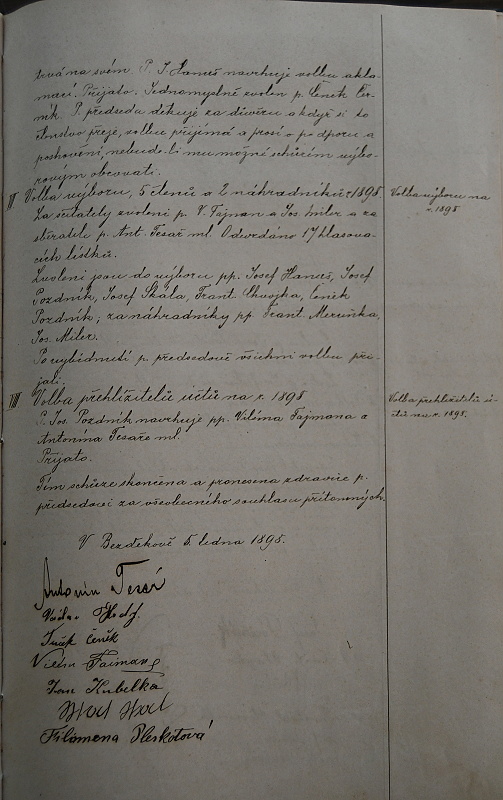 trvá na svém. P. J. Hanuš navrhuje volbu akla-
mací. Přijato. Jednomyslně zvolen p. Čeněk
ník. P. předseda děkuje za důvěru a když si to
členstvo přeje, volbu přijímá a prosí o podporu a
poshovění, nebude-li mu možné schůzím výbo-
rovým obcovati.
VI Volba výboru, 5 členů a 2 náhradníků r. 1898.
Volba výboru na
r. 1898
Za sčitately zvoleni p. V. Fajman a Jos. Miler a za
sběratele p. Ant. Tesař ml. Odevzdáno 17 hlasova-
cích lístků.
Zvoleni jsou do výboru pp. Josef Hanuš, Josef
Pozdník, Josef Skála, Frant. Chvojka, Čeněk
Pozdník; za náhradníky pp. Frant. Meruňka,
Jos. Miler.
Po vybídnutí p. předsedově všichni volbu při-
jali.
VII Volba přehlížitelů účtů na r. 1898
Volba přehlížitelů ú-
čtů na r. 1898.
P. Jos. Pozdník navrhuje pp. Viléma Fajmana a
Antonína Tesaře ml.
Přijato.
Tím schůze skončena a pronesena zdravice p.
předsedovi za všeobecného souhlasu přítomných.
V Bezděkově 5. ledna 1898.
Antonín Tesař
Václav
Čeněk
Vilém Fajman
Jan Kubelka
Filomena Pleskotová